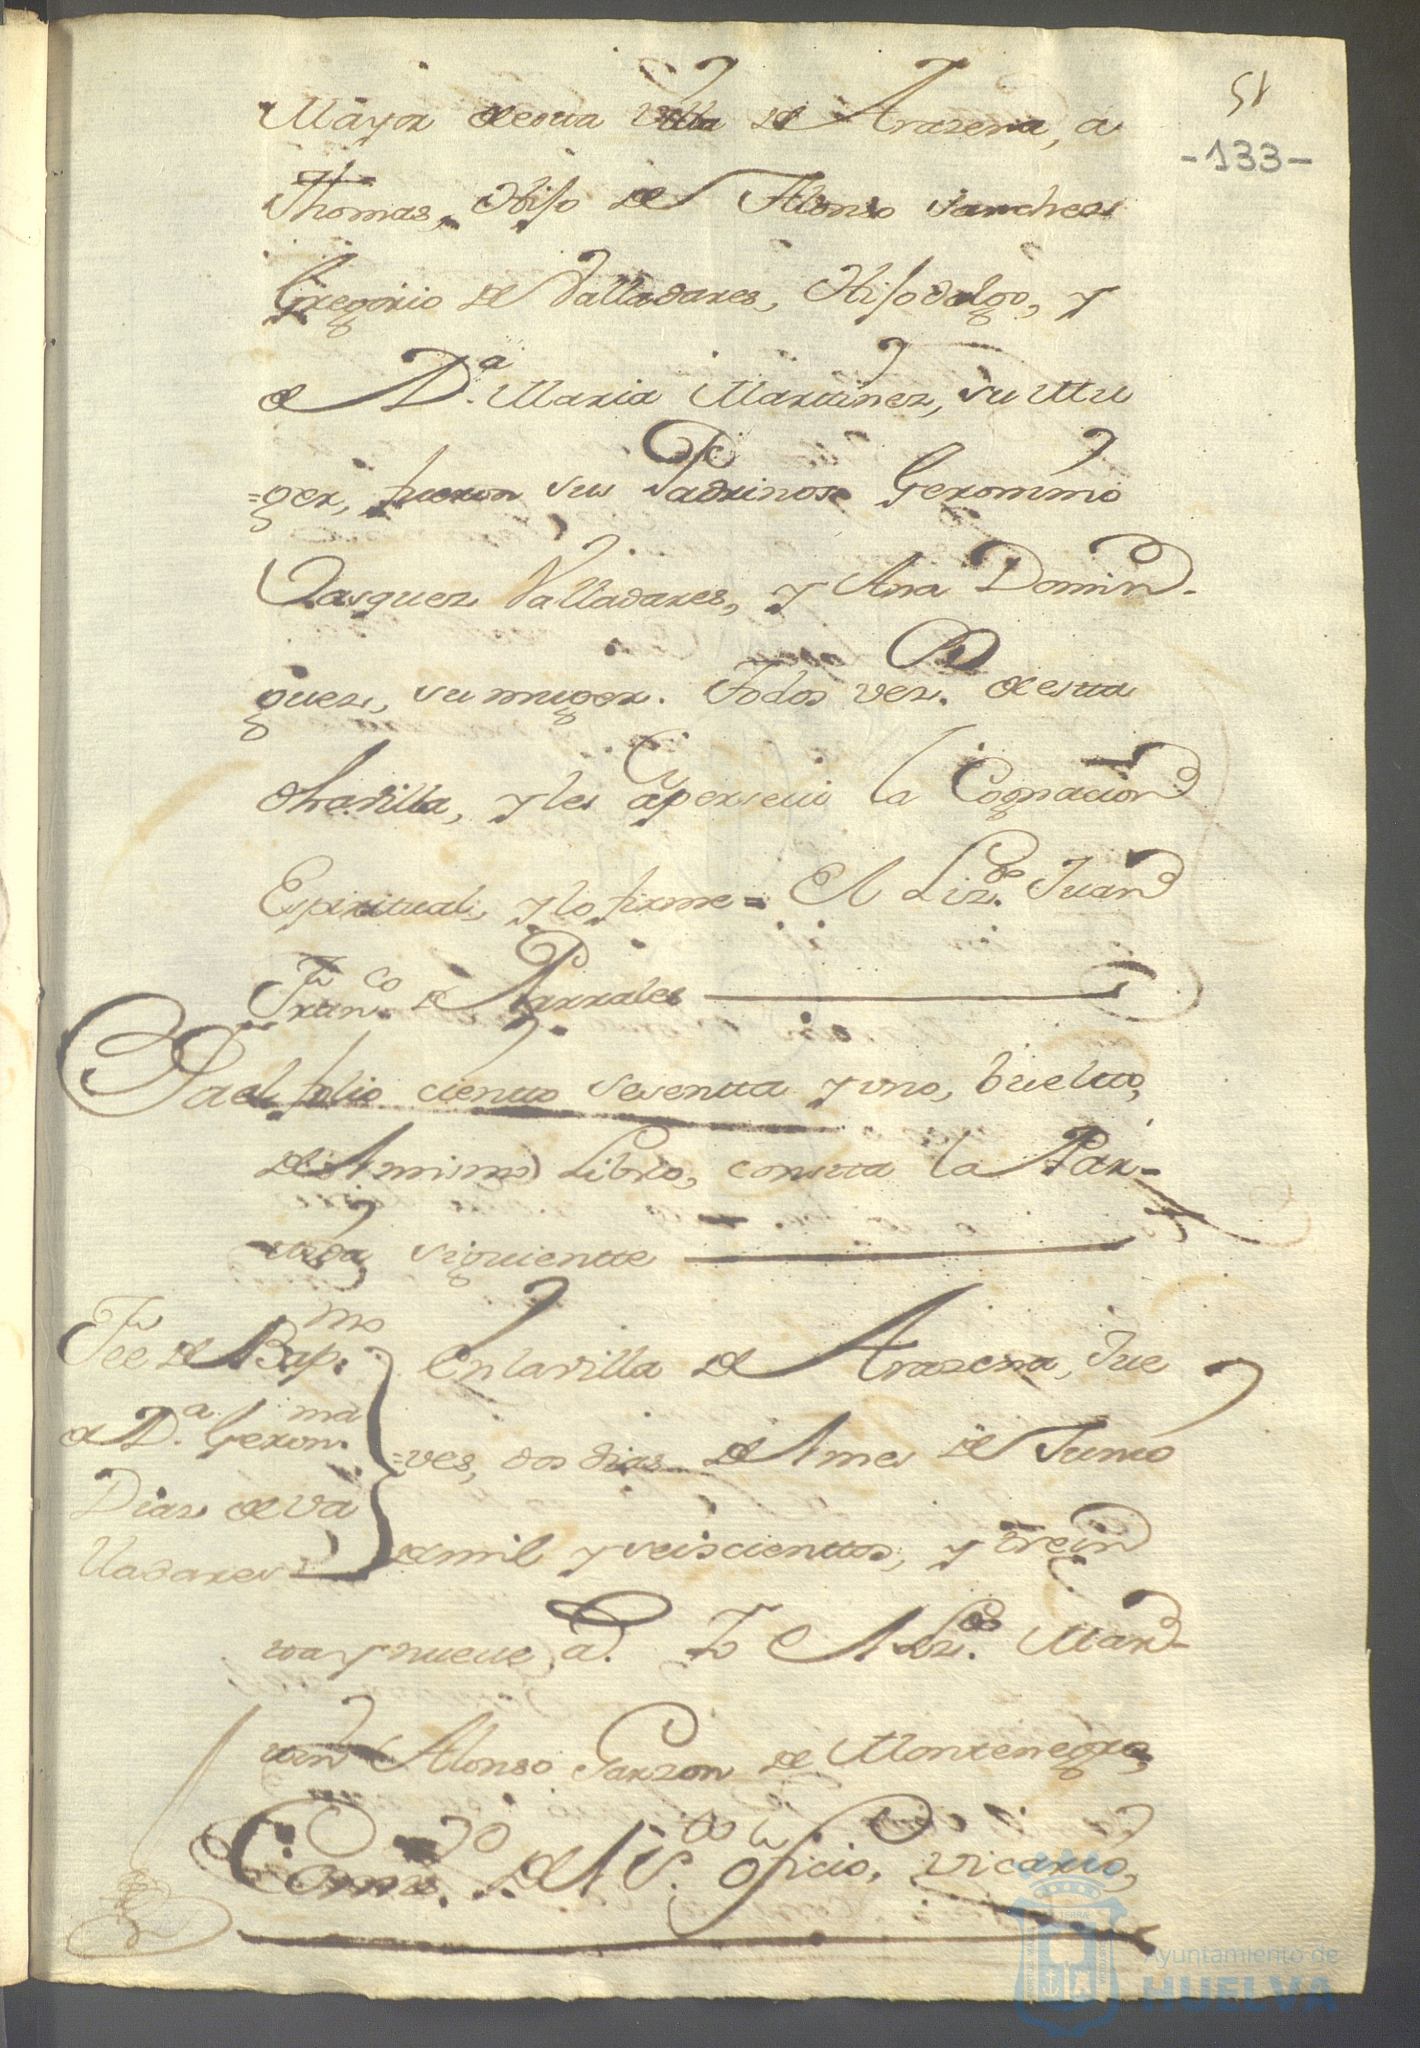 51
-133-
Mayor desta Villa de Arazena, a
Thomas, Hijo de Alonso Sanches
Gregorio de Valladares, Hijodalgo, y
de D.ª Maria Martinez, su Mu
=ger, fueron sus Padrinos Geronimo
Vasquez Valladares, y Ana Domin-
guez, su muger. Todos vez. de esta
dha villa, y les apersevi la Cognacion
Espiritual, y lo firme = El Liz.do Juan
Fran.co de Parrales
Y a el folio ciento sesenta y uno, buelto,
del mismo Libro, consta la Par-
tida siguiente
Fee de Bap.mo
de D.ª Geron.ma
Diaz de Va
lladares
En la villa de Arazena, Jue
=ves, dos dias del mes de Junio
de mil y seiscienttos, y trein
ta y nueve a.s Yo El Liz.do Mar-
tin Alonso Garzon de Montenegro,
Com.rio del S.to oficio, Vicario,
Ayuntamiento de
HUELVA